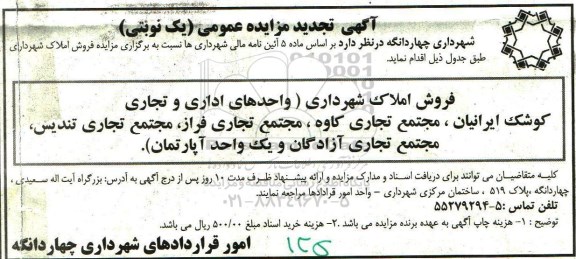 آگهی تجدید مزایده عمومی (یک نوبتی)
شهرداری چهاردانگه درنظر دارد بر اساس ماده ۵ آئین نامه مالی شهرداری ها نسبت به برگزاری مزایده فروش املاک شهرداری
طبق جدول ذیل اقدام نماید.
فروش املاک شهرداری ( واحدهای اداری و تجاری
کوشک ایرانیان ، مجتمع تجاری کاوه ، مجتمع تجاری فراز، مجتمع تجاری تندیس،
مجتمع تجاری آزادگان و یک واحد آپارتمان).
کلیه متقاضیان می توانند برای دریافت اسناد و مدارک مزایده و ارائه پیشنهاد ظرف مدت ۱۰ روز پس از درج آگهی به آدرس: بزرگراه آیت اله سعیدی ،
چهاردانگه ،پلاک ۵۱۹ ، ساختمان مرکزی شهرداری - واحد امور قرادادها مراجعه نمایند.
تلفن تماس :۵-۵۵۲۷۹۲۹۴
۰۲۱-۸۸۳۴۹۶۷۰-۵
توضیح : ۱- هزینه چاپ آگهی به عهده برنده مزایده می باشد .۲- هزینه خرید اسناد مبلغ ۵۰۰/۰۰ ریال می باشد.
امور قراردادهای شهرداری چهاردانگه
۱۲۵